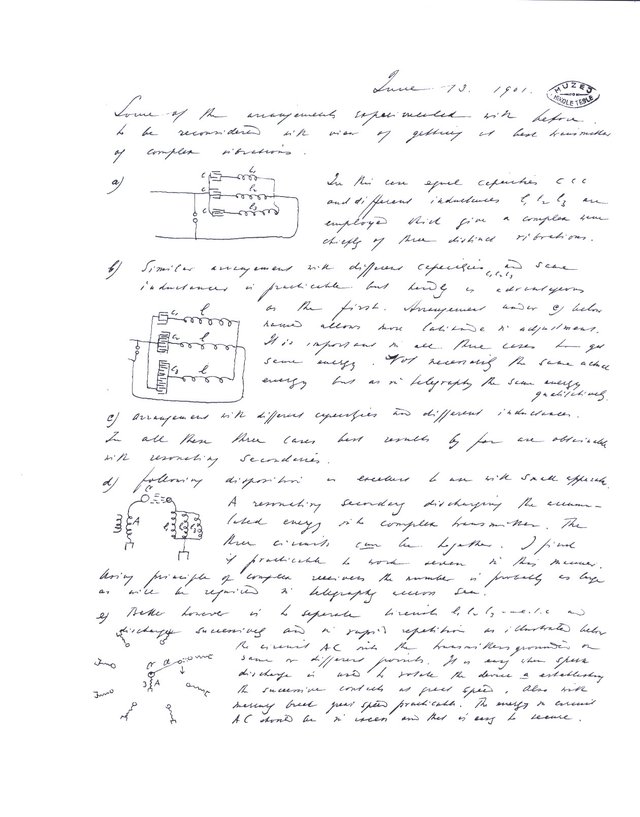 June 13. 1901.
MUZEJ NIKOLE TESLE
Some of the arrangements experimented with before
to be reconsidered with view of getting at best transmitter
of complex vibrations.
a) In this case equal capacities c c c
and different inductances l₁ l₂ l₃ are
employed which give a complex wave
chiefly of three distinct vibrations.
c l₁
c l₂
c l₃
b) Similar arrangement with different capacities c₁ c₂ c₃ and same
inductances is practicable but hardly as advantageous
as the first. Arrangement under c) below
named allows more latitude in adjustment.
It is important in all three cases to get
same energy. Not necessarily the same actual
energy but as in telegraphy the same energy
qualitatively.
c₁ l
c₂ l
c₃ l
c) arrangement with different capacities and different inductances.
In all these three cases best results by far are obtainable
with resonating secondaries.
d) following disposition is excellent to use with small apparatus.
A resonating secondary discharging the accumu-
lated energy into complex transmitter. The
three circuits can be together. I find
it practicable to work seven in this manner.
A
Using principle of complex receivers the number is probably as large
as will be required in telegraphy across sea.
e) Better however is to separate circuits l₁ l₂ l₃ and
discharge successively and in rapid repetition as illustrated below
the circuit AC into the transmitters grounded on
same or different points. It is easy when spark
discharge is used to rotate the device a establishing
the successive contacts at great speed. Also with
mercury break great speed practicable. The energy in circuit
AC should be in excess and that is easy to secure.
A